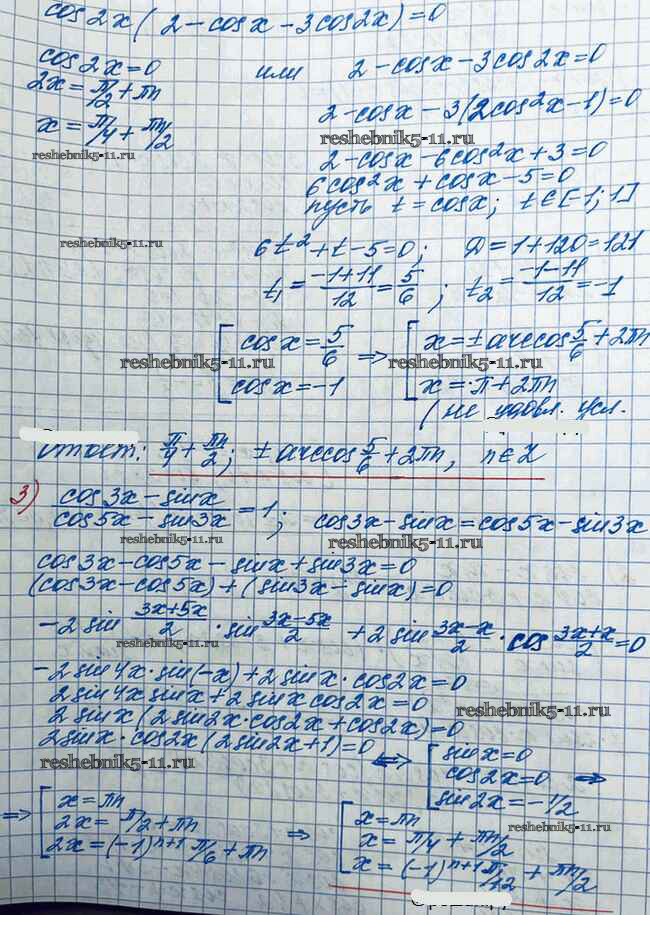 cos2x(2-cosx-3cos2x)=0
cos2x=0 или 2-cosx-3cos2x=0
2x=π/2+πn
2-cosx-3(2cos²x-1)=0
x=π/4+πn/2
reshebnik5-11.ru
reshebnik5-11.ru
2-cosx-6cos²x+3=0
6cos²x+cosx-5=0
пусть t=cosx; t∈[-1;1]
reshebnik5-11.ru
6t²+t-5=0; Д=1+120=121
t₁=(-1+11)/12=5/6; t₂=(-1-11)/12=-1
[cosx=5/6 ⇒ [x=±arccos5/6+2πn
reshebnik5-11.ru reshebnik5-11.ru
cosx=-1 x=π+2πn
(не удовл. усл.
Ответ: π/4+πn/2; ±arccos5/6+2πn, n∈Z
3) (cos3x-sinx)/(cos5x-sin3x)=1; cos3x-sinx=cos5x-sin3x
reshebnik5-11.ru reshebnik5-11.ru
cos3x-cos5x-sinx+sin3x=0
(cos3x-cos5x)+(sin3x-sinx)=0
-2sin(3x+5x)/2·sin(3x-5x)/2+2sin(3x-x)/2·cos(3x+x)/2=0
reshebnik5-11.ru
-2sin4x·sin(-x)+2sinx·cos2x=0
2sin4xsinx+2sinxcos2x=0
2sinx(2sin2x·cos2x+cos2x)=0
reshebnik5-11.ru
2sinx·cos2x(2sin2x+1)=0 ⇔ [sinx=0
reshebnik5-11.ru
cos2x=0 ⇒
sin2x=-1/2
⇒ [x=πn ⇒ [x=πn
reshebnik5-11.ru
2x=π/2+πn x=π/4+πn/2
2x=(-1)ⁿ⁺¹π/6+πn x=(-1)ⁿ⁺¹π/12+πn/2